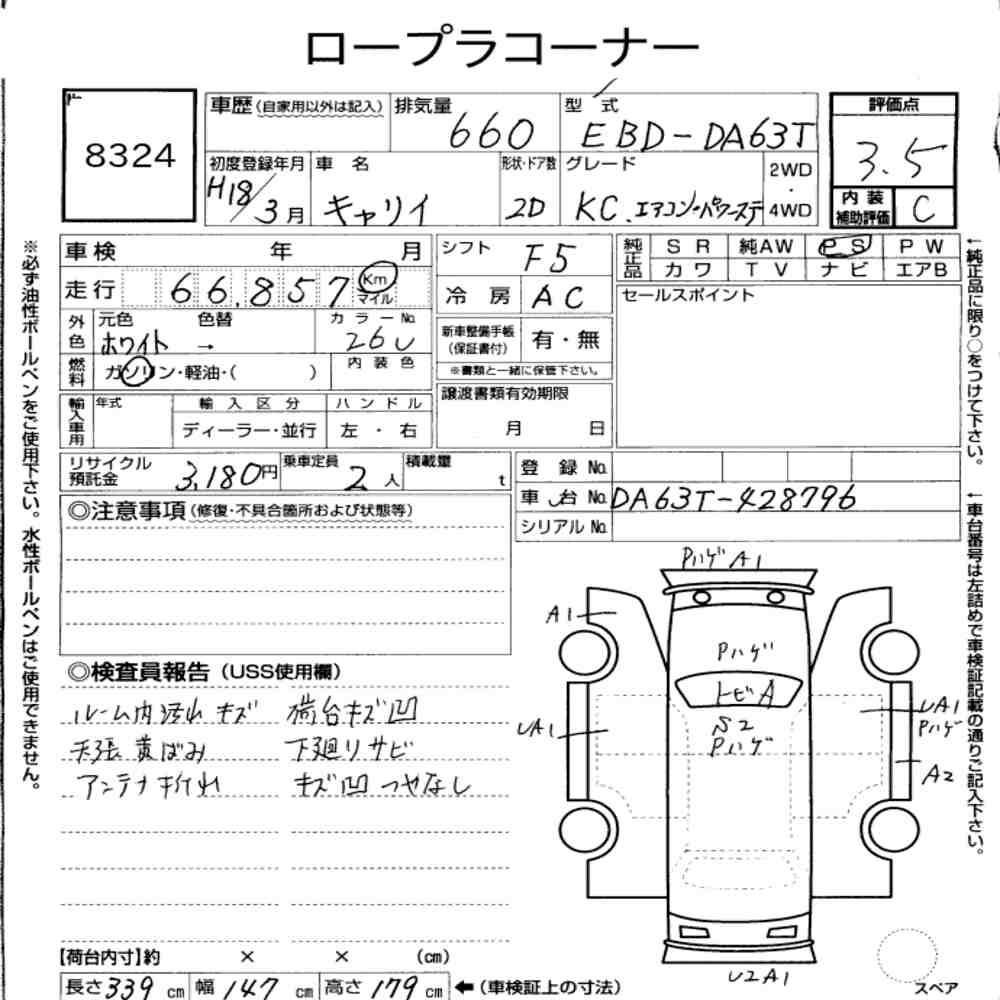 ロープラコーナー
8324
車歴（自家用以外は記入）
排気量
660
型 式
EBD-DA63T
評価点
3.5
初度登録年月
H18/3月
車 名
キャリイ
形状・ドア数
2D
グレード
KC.エアコン・パワーステ
2WD
・
4WD
内 装
補助評価
C
車検 年 月
走行 66,857 Km
マイル
外色 元色 色替 カラーNo.
ホワイト → 26U
燃料 ガソリン・軽油・( ) 内装色
輸入車用 年式 輸入区分 ハンドル
ディーラー・並行 左・右
リサイクル預託金 3,180円
乗車定員 2人
積載量 t
シフト F5
冷 房 AC
新車整備手帳
(保証書付)
有・無
※書類と一緒に保管下さい。
譲渡書類有効期限
月 日
純正品 SR 純AW PS PW
カワ TV ナビ エアB
セールスポイント
登 録 No.
車 台 No. DA63T-428796
シリアル No.
◎注意事項（修復・不具合箇所および状態等）
◎検査員報告（USS使用欄）
ルーム内汚れ キズ 荷台キズ凹
手張 黄ばみ 下廻りサビ
アンテナ折れ キズ凹 つやなし
【荷台内寸】約 × × (cm)
長さ339cm 幅147cm 高さ179cm ←（車検証上の寸法）
Pハゲ A1
A1
Pハゲ
トビA
S2
Pハゲ
UA1
UA1
Pハゲ
A2
U2A1
スペア
※必ず油性ボールペンをご使用下さい。水性ボールペンはご使用できません。
←純正品に限り○をつけて下さい。
←車台番号は左詰めで車検証記載の通りご記入下さい。